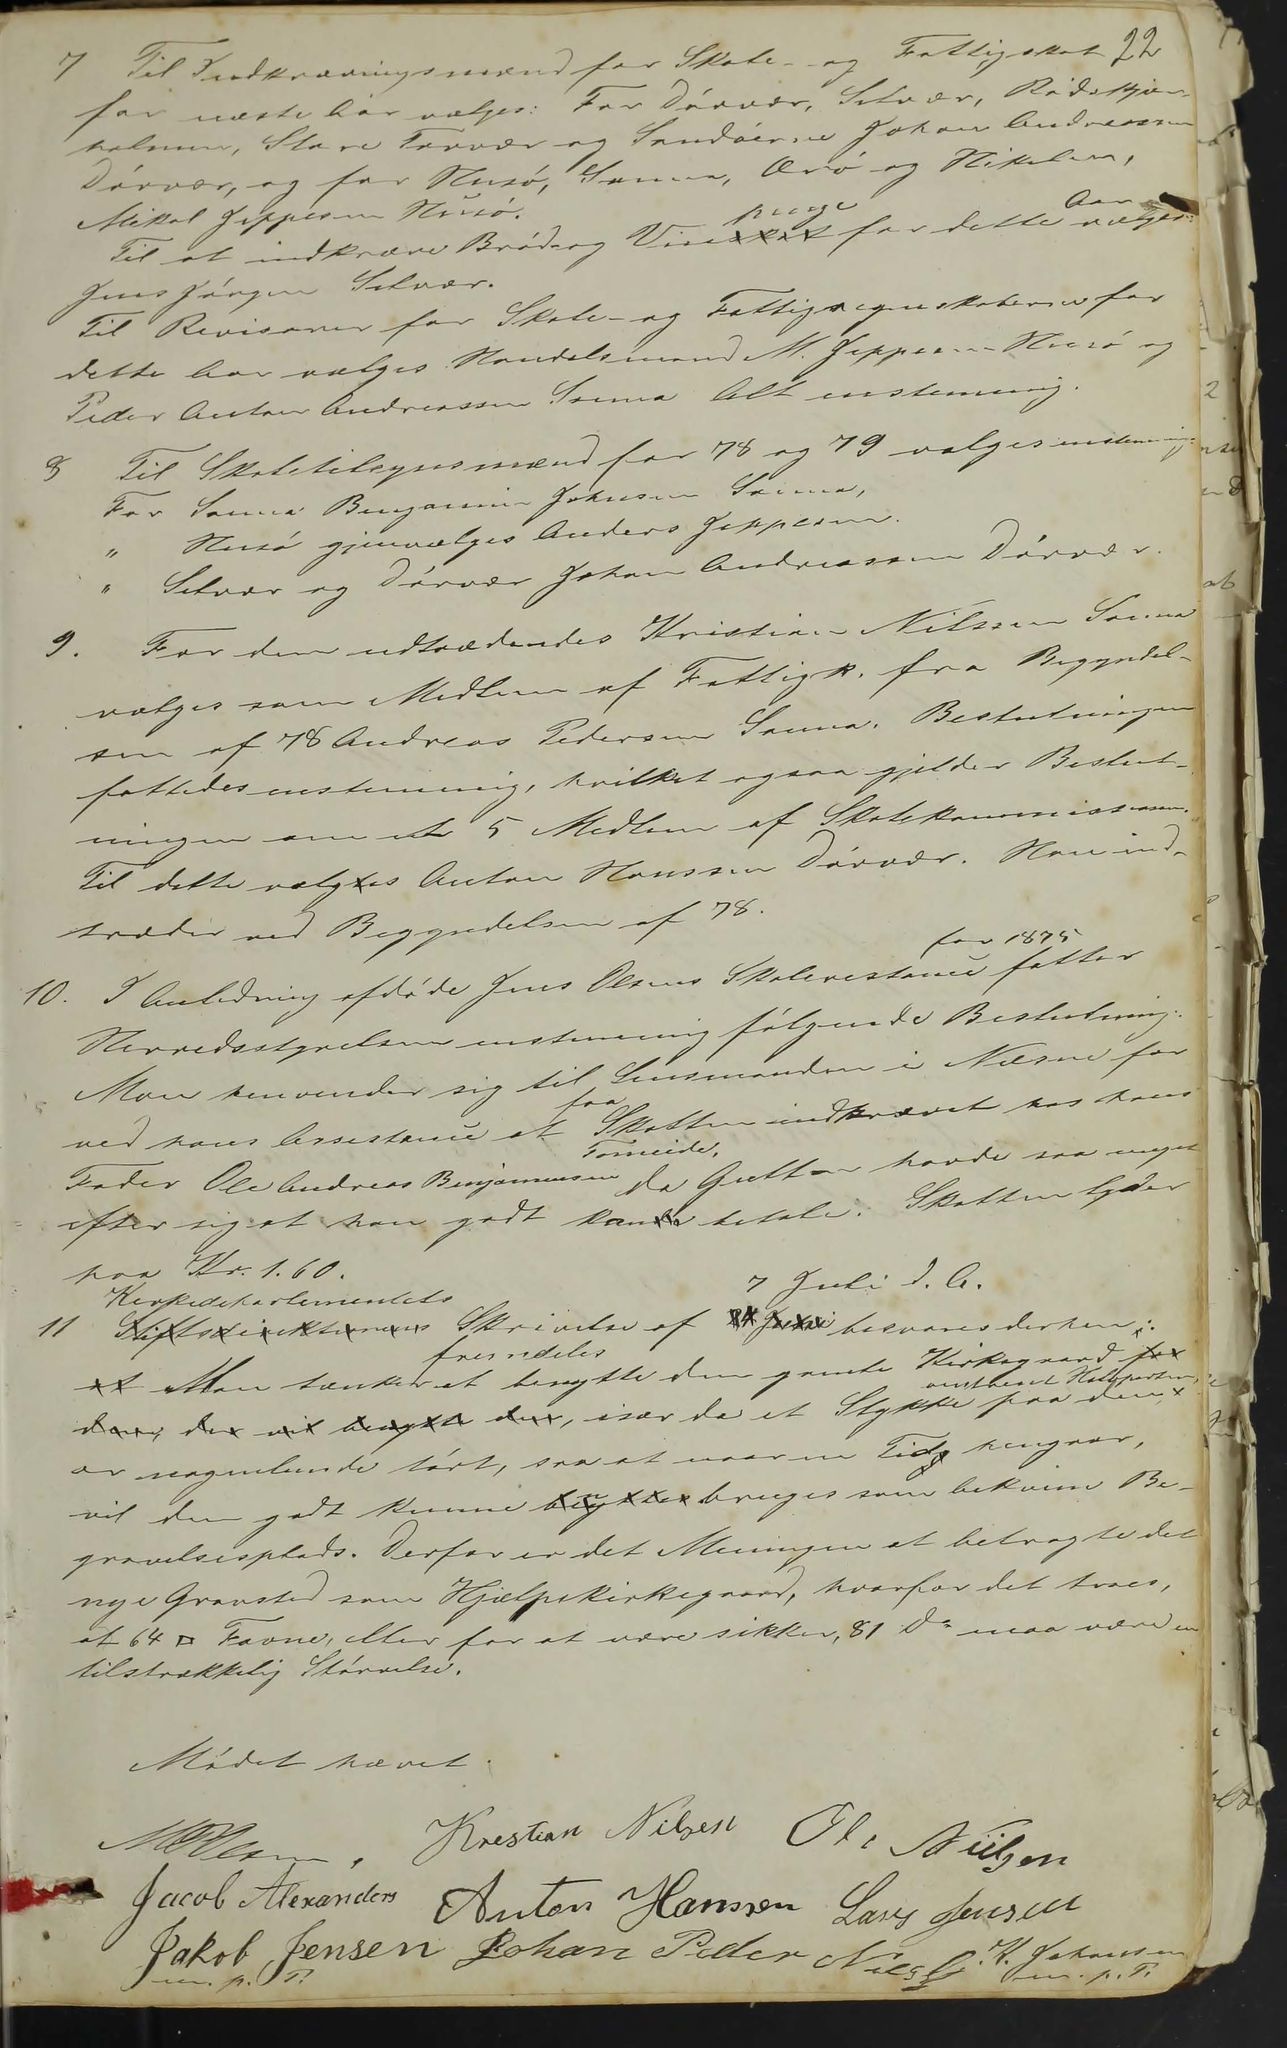 22
7 Til Indkrævningsmænd for Skole- og Fattigskat
for næste Aar vælges: For Dörvær, Selvær, Rödskjær-
holmen, Store Forvær og Sandöerne Johan Andreassen
Dörvær, og for Husö, Sanna, Ærö og Nikelen,
Mikal Jeppesen Husö.
Til at indkræve Bröd og Vinpenge for dette Aar vælges:
Jens Jörgen Selvær.
Til Revisorer for Skole- og Fattigregnskaberne for
dette Aar vælges Handelsmand M. Jeppesen Husö og
Peder Anton Andreassen Sanna Alt enstemmig.
8 Til Skoletilsynsmænd for 78 og 79 valges enstemmig:
For Sanna Benjamin Johnsen Sanna,
" Husö gjenvælges Anders Jeppesen.
" Selvær og Dörvær Johan Andreassen Dörvær.
9. For den udtrædendes Kristian Nilssen Sanna
vælges som Medlem af Fattigk. fra Begyndel-
sen af 78 Andreas Pedersen Sanna. Beslutningen
fattedes enstemmig, hvilket ogsaa gjelder Beslut-
ningen om et 5 Medlem af Skolekommissionen.
Til dette vælges Anton Hanssen Dörvær. Han ind-
træder ved Begyndelsen af 78.
10. I Anledning afdöde Jens Olsens Skolerestance for 1875 fatter
Herredsstyrelsen enstemmig fölgende Beslutning:
Man henvender sig til Lensmanden i Næsne for
ved hans Assistance at faa Skatten indkrævet hos hans
Fader Ole Andreas Benjaminsen Tomeide, da Gutten havde saa meget
efter sig at han godt kan betale. Skatten lyder
paa Kr. 1.60.
11 Kirkedepartementets Skrivelse af 7 Juli d. A. besvares derhen:
Man tænker fremdeles at benytte den gamle Kirkegaard
især da et Stykke paa den
er nogenlunde tört, saa at naar en Tid hengaar,
vil den godt kunne bruges som bekvem Be-
gravelsesplads. Derfor er det Meningen at betragte det
nye Gravsted som Hjælpekirkegaard, hvorfor det troes,
at 64 □ Favne, eller for at være sikker, 81 Do maa være en
tilstrækkelig Störrelse.
Mödet hævet.
Krestian Nilsen Ole Nilsen
Jacob Alexanders Anton Hanssen Lars Jensen
Jakob Jensen Johan Peder Nilss K. Johansen
m. p. P. m. p. P.